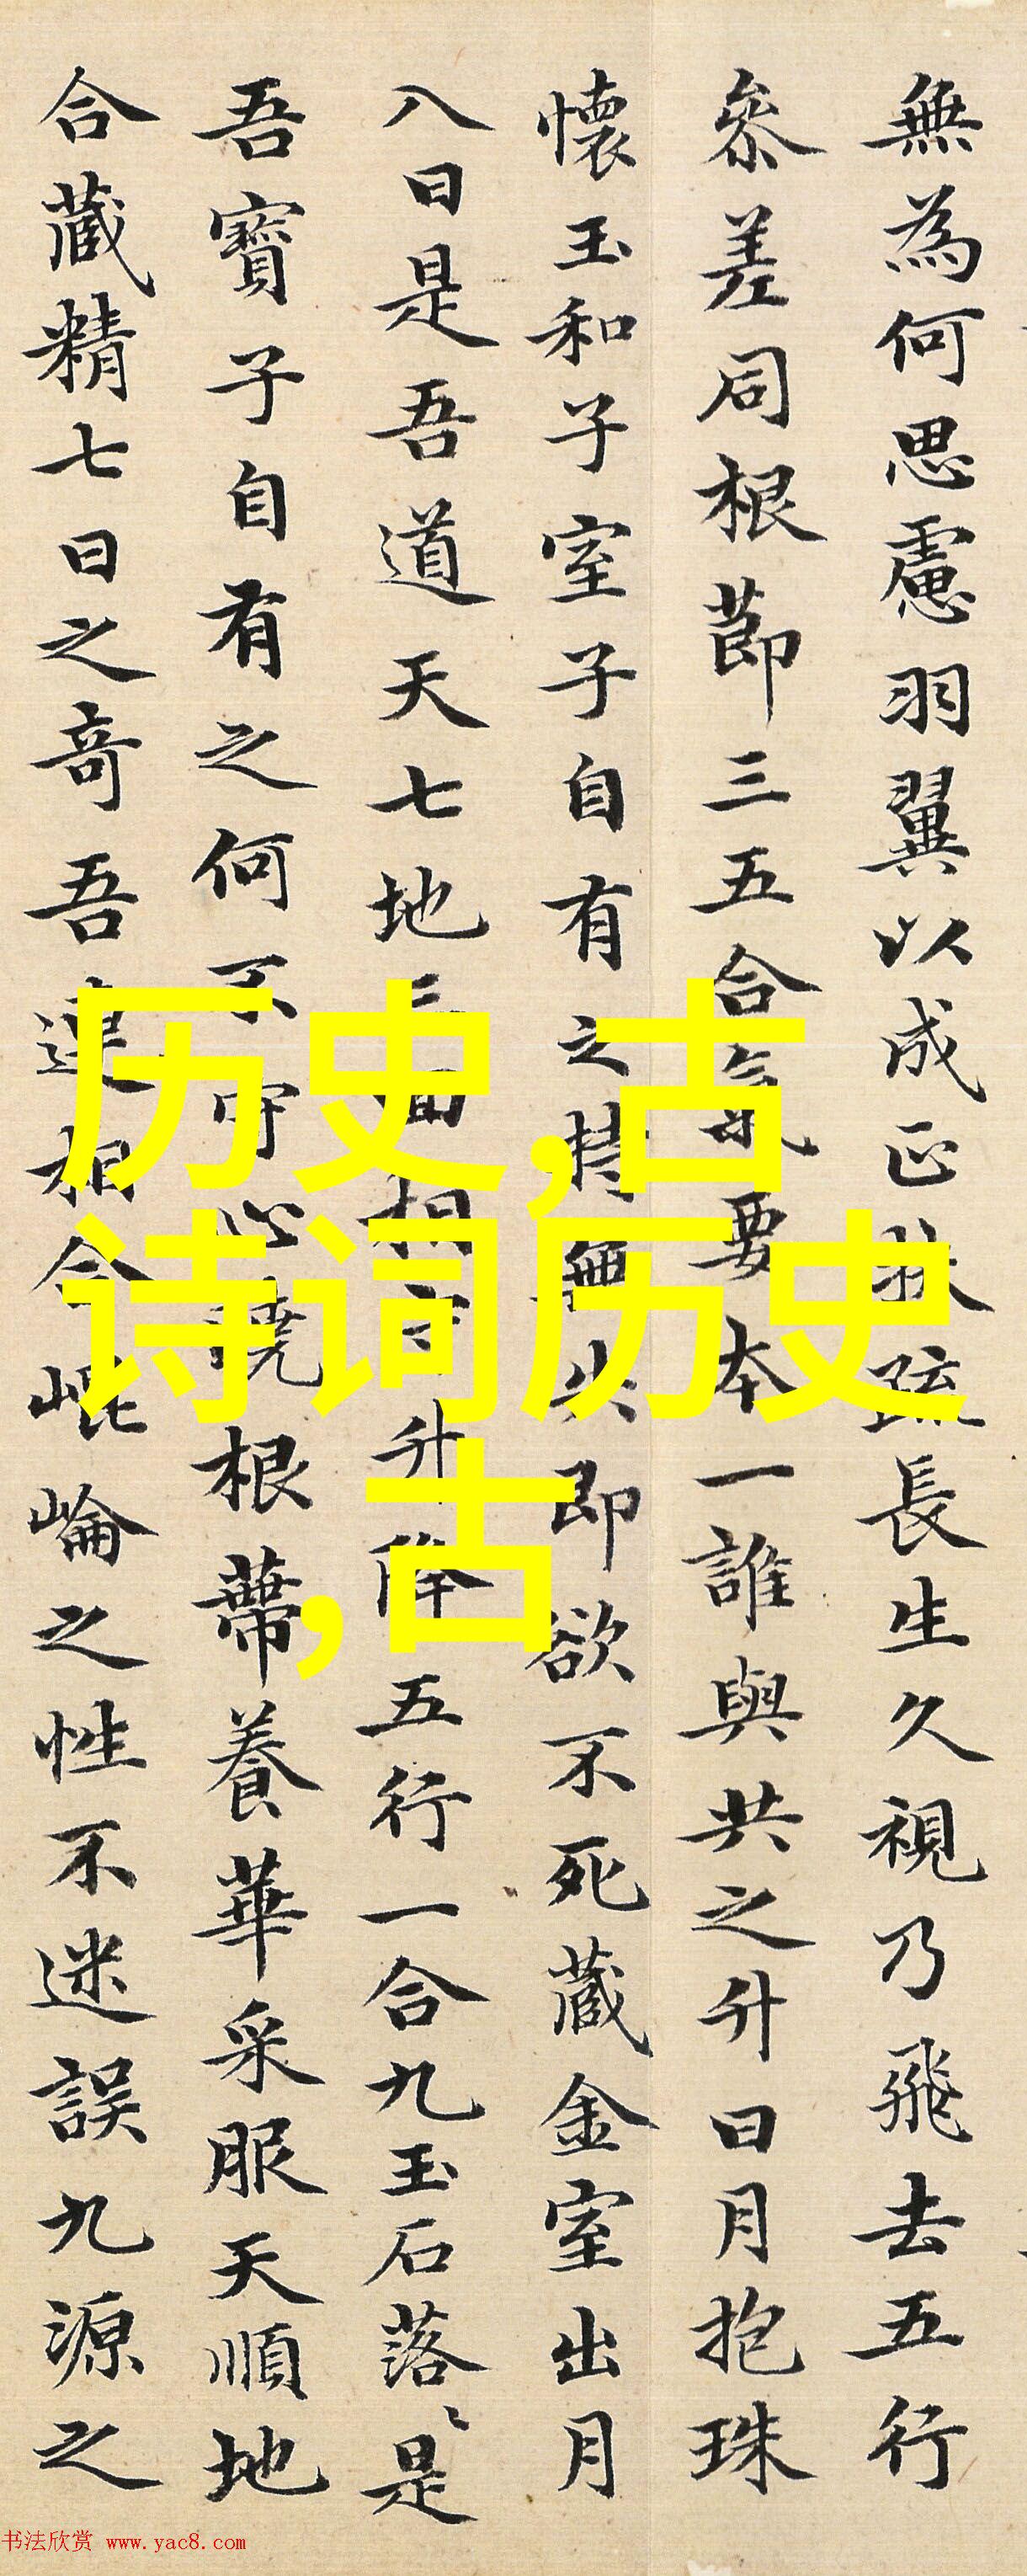 無為何思慮羽翼以成正扶疏長生久視乃飛去五行
叅差同根莭三五合氣要本一誰與共之升日月抱珠
懷玉和子室子自有之持無失即欲不死藏金室出月
八日是吾道天七地三回相守升降五行一合九玉石落〻是
吾寶子自有之何不守心曉根蔕養華采服天順地
合藏精七日之奇吾連相合崐崘之性不迷誤九源之
历史,古
诗词历史
,古
书法欣赏 www.yac8.com